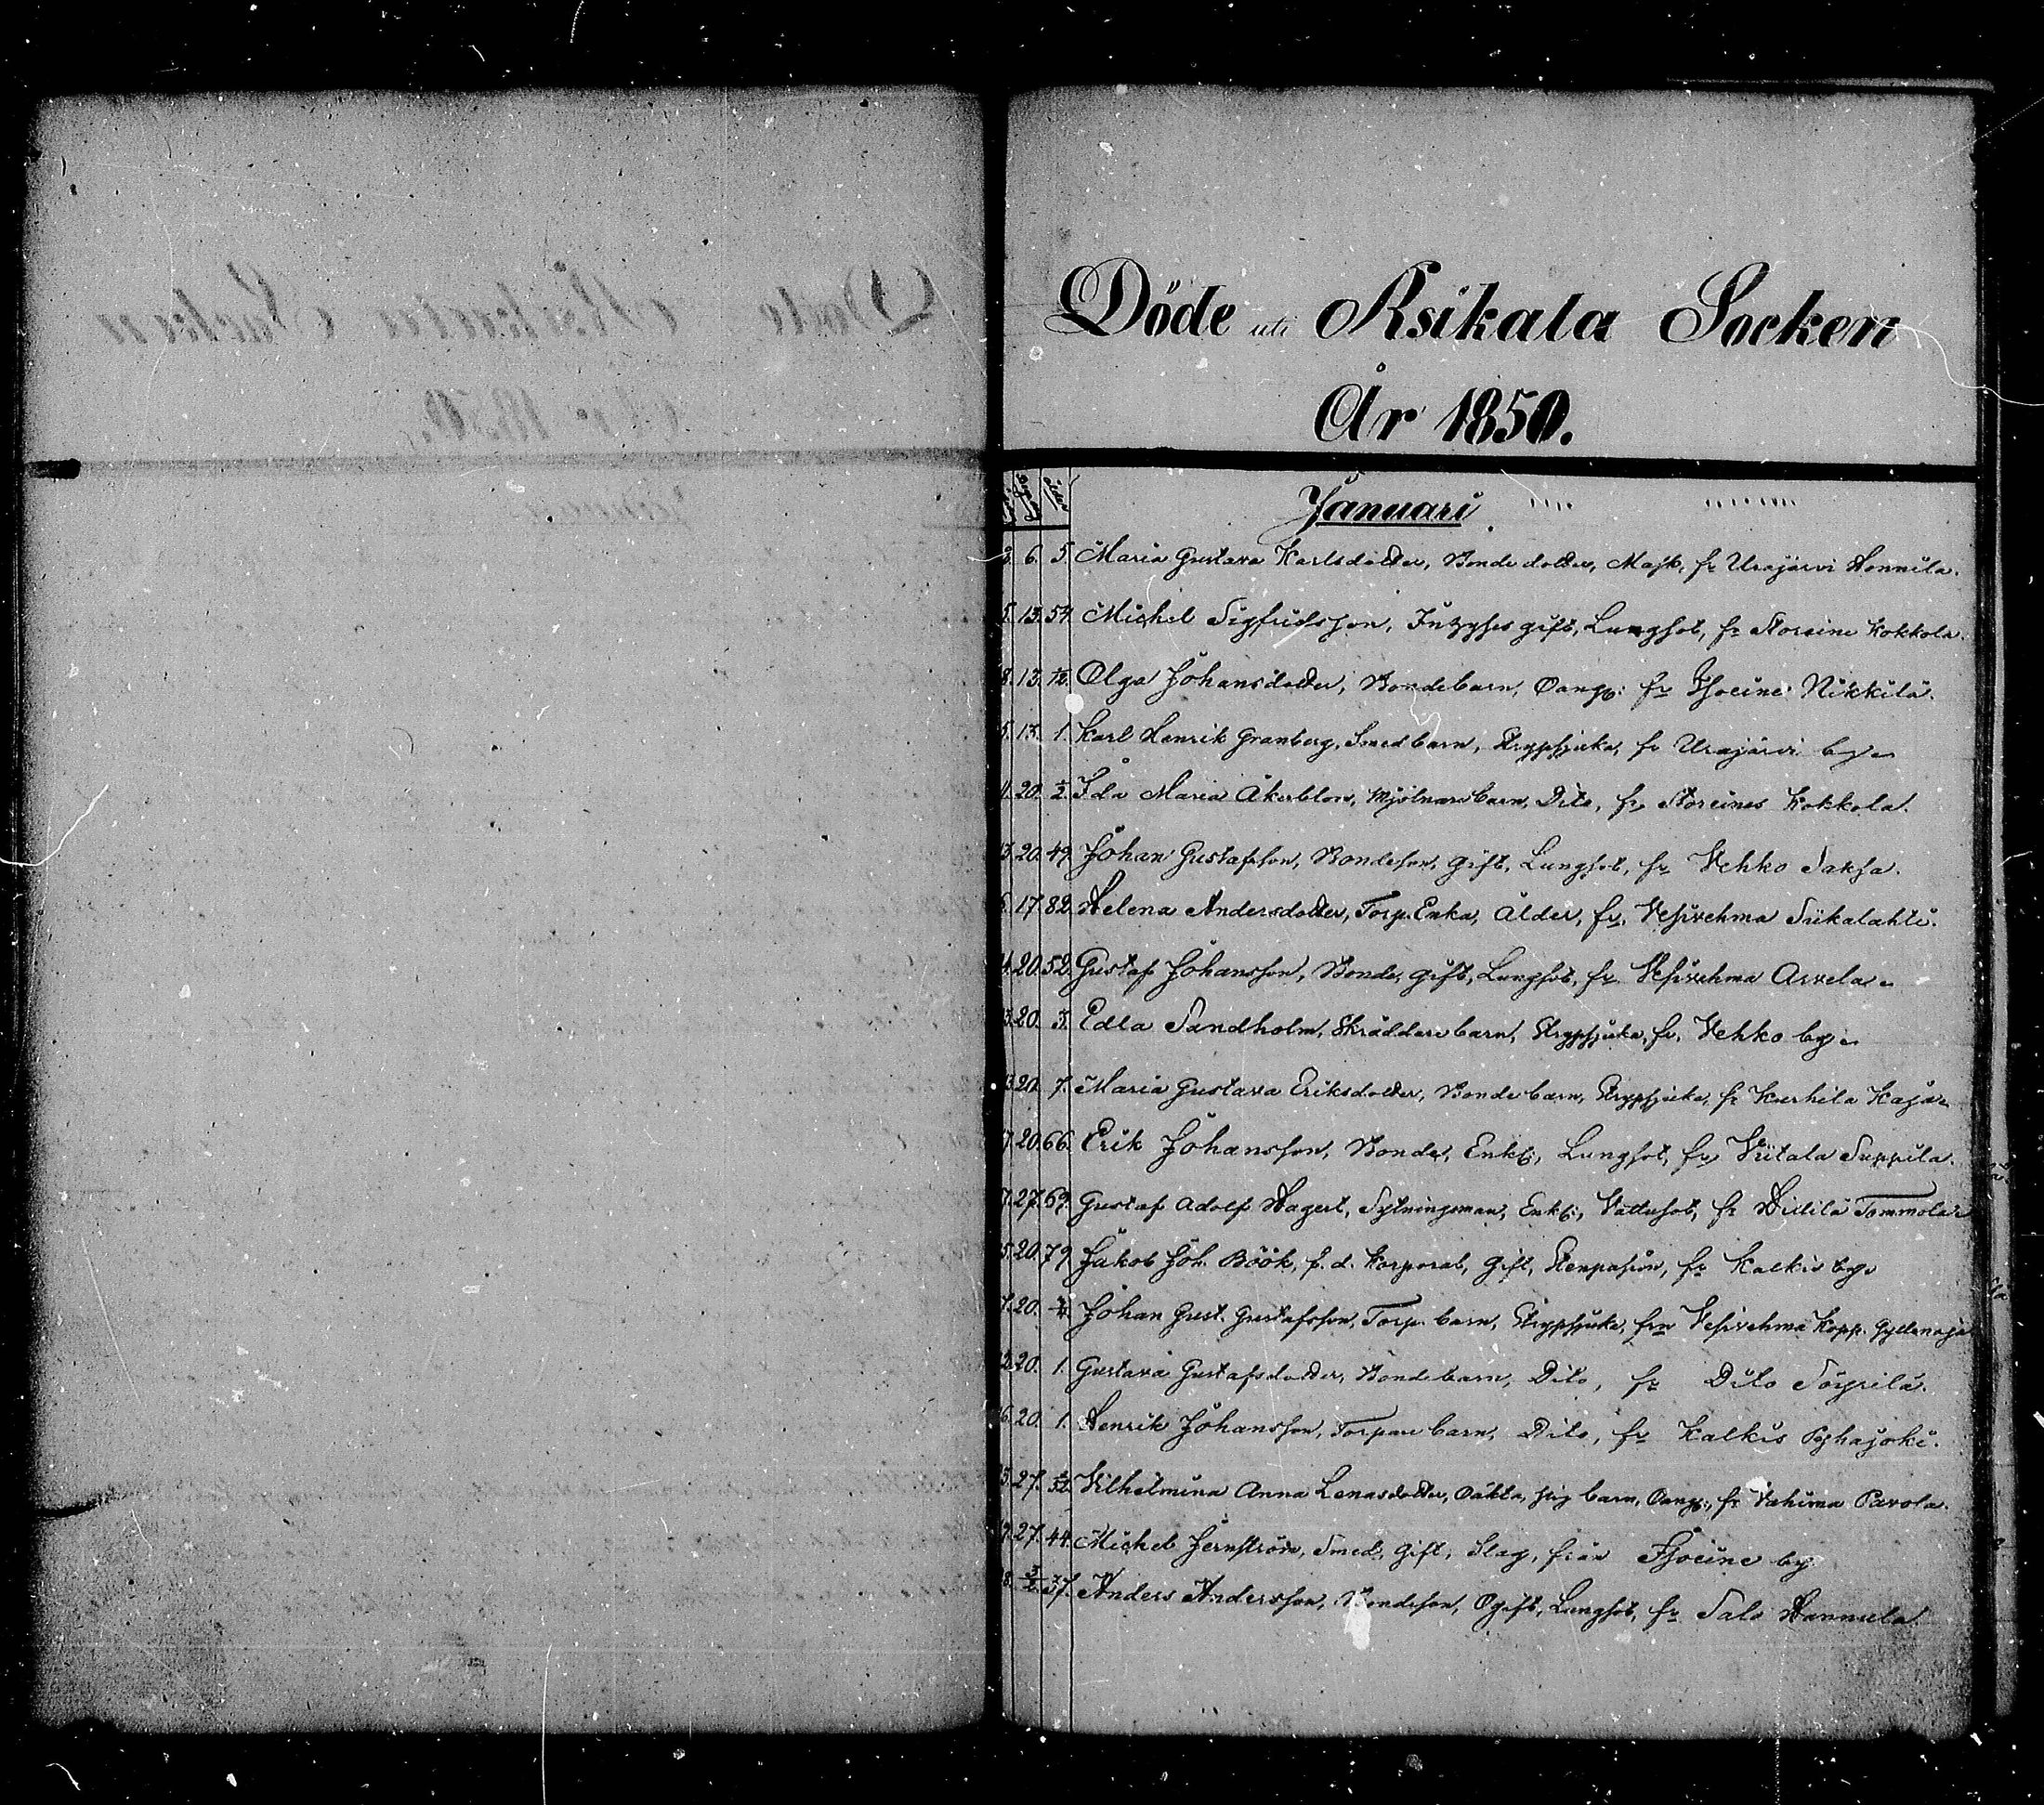 Döde uti Asikala Socken
År 1850.
Januari
6. 5. Maria Gustava Karlsdotter, Bonde dotter, Mask, fr Urajärvi Honnila.
5. 13. 54 Michel Sigfridsson, Inhyses gift, Lungsot, fr Storeine Kokkola.
8. 13. 1/12. Olga Johansdotter, Bondebarn, Oang: fr Hjoeine Nikkilä.
5. 13. 1. Karl Henrik Granberg, Smed barn, Strypsjuka, fr Urajärvi by
20. 1/2. Ida Maria Åkerblom, Mjölnare barn, Dito, fr Storeines Kokkola.
20. 49. Johan Gustafsson, Bondeson, gift, Lungsot, fr Vehko Jaksa.
17. 82. Helena Andersdotter, Torp. Enka, Ålder, fr. Vesivehma Siikalahti.
20. 52. Gustaf Johansson, Bonde, gift, Lungsot, fr Vesivehma Arvela
20. 3. Edla Sandholm, Skräddare barn, Strypsjuka, fr. Vehko by
20. 7. Maria Gustava Eriksdotter, Bonde barn, Strypsjuka, fr Kurhila Kaja
20. 66. Erik Johansson, Bonde, Enkl:, Lungsot, fr Viitala Suppila.
27. 69. Gustaf Adolf Hagert, Sytningsman, Enkl:, Vattusot, fr Hillilä Tommola
20. 79 Jakob Joh. Böök, f. d. Korporal, Gift, Stenpassion, fr Kalkis by
20. Johan Gust. Gustafsson, Torp. barn, Strypsjuka, frn Vesivehma Kopp.
20. 1. Gustava Gustafsdotter, Bondebarn, Dito, fr Dito Söyrilä.
20. 1. Henrik Johansson, Torpare barn, Dito, fr Kalkis Pyhäjoki.
27. Vilhelmina Anna Lenasdotter, Oäkta, barn, Oang:, fr Vähima Pavola.
27. 44. Michel Jernström, Smed, gift, Slag, från Hjoeine by.
37. Anders Andersson, Bondeson, Ogift, Lungsot, fr Salo Hannula